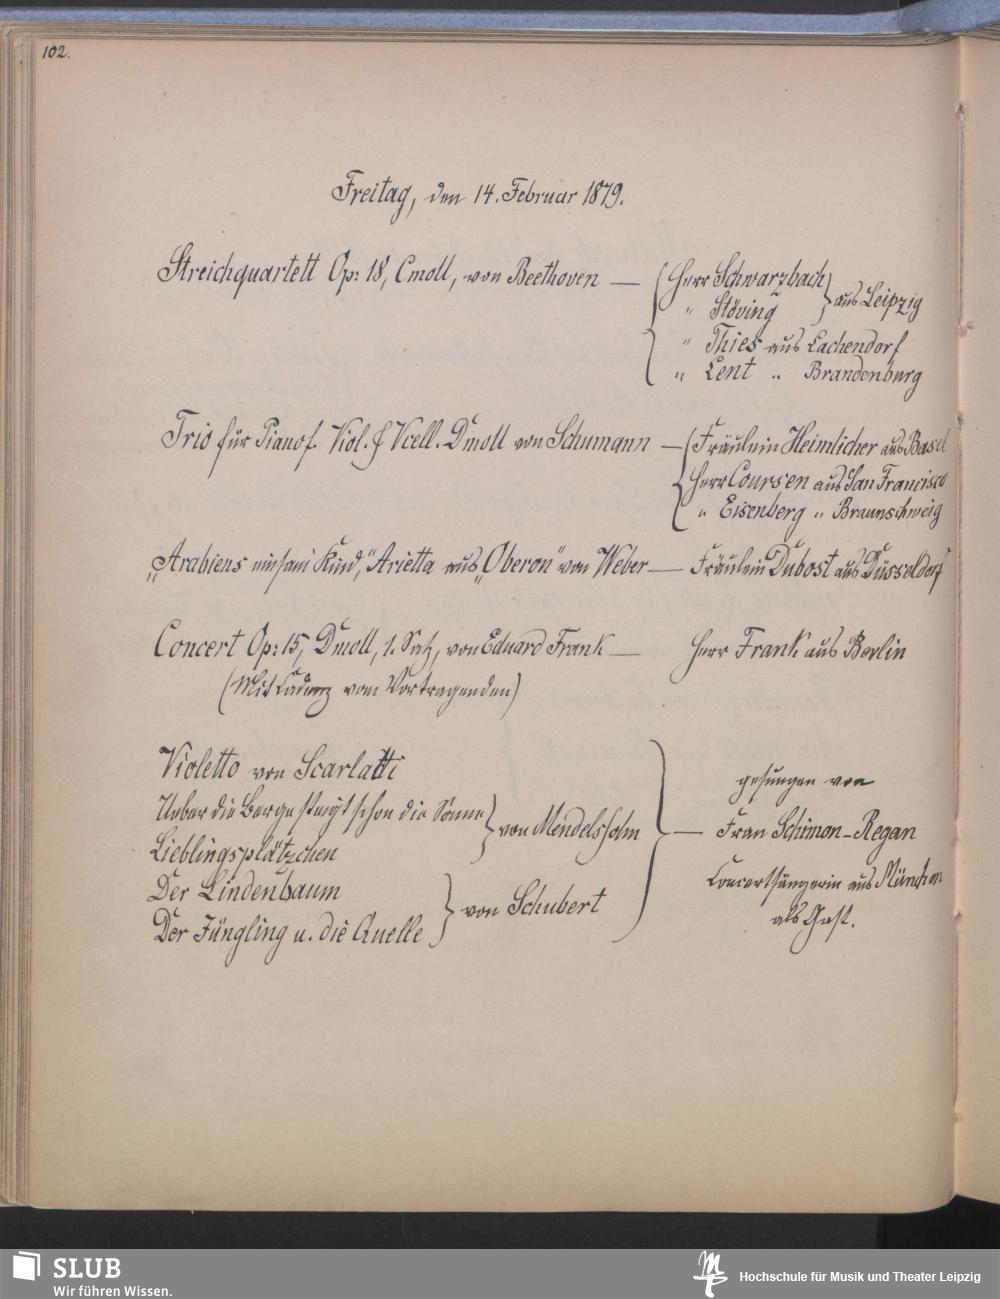 102.
Freitag, den 14. Februar 1879.
Streichquartett Op: 18, Cmoll, von Beethoven — Herr Schwarzbach
" Stöving } aus Leipzig
" Thies aus Lachendorf
" Lent " Brandenburg
Trio für Pianof. Viol. & Vcell. Dmoll von Schumann — Fräulein Heimlicher aus Basel
Herr Coursen aus San Francisco
" Eisenberg " Braunschweig
„Arabiens einsam Kind," Arietta aus „Oberon" von Weber — Fräulein Dubost aus Düsseldorf
Concert Op: 15, Dmoll, 1. Satz, von Eduard Frank — Herr Frank aus Berlin
(Mit Cadenz vom Vortragenden)
Violetto von Scarlatti
Ueber die Berge steigt schon die Sonne
Lieblingsplätzchen } von Mendelssohn
Der Lindenbaum
Der Jüngling u. die Quelle } von Schubert
gesungen von
— Frau Schimon-Regan
Concertsängerin aus München
als Gast.
SLUB
Wir führen Wissen.
Hochschule für Musik und Theater Leipzig